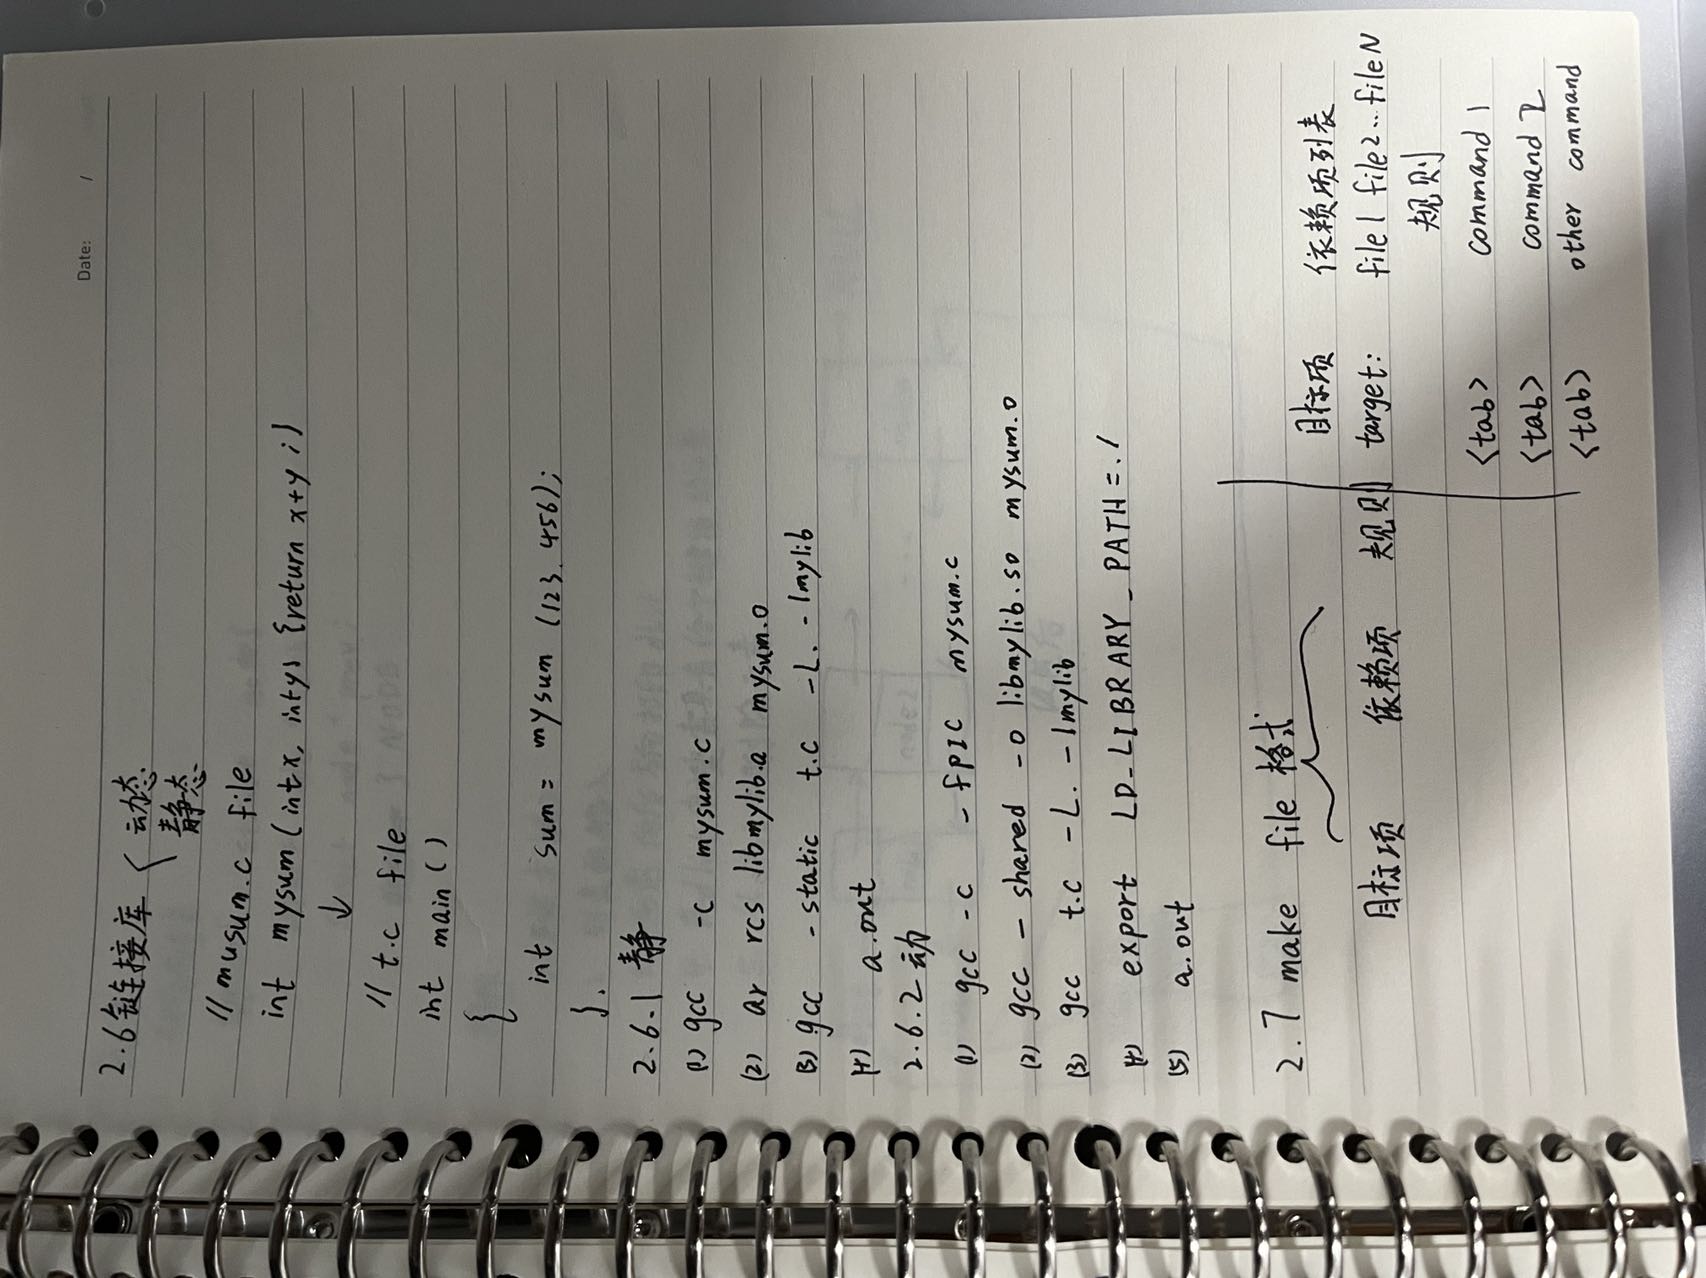 Date: /
2.6 链接库 〈 动态.
静态
// musum.c file
int mysum (int x, int y) {return x+y ;}
↓
// t.c file
int main ( )
{
int sum = mysum (123, 456);
}.
2.6.1 静
(1) gcc -c mysum.c
(2) ar rcs libmylib.a mysum.o
(3) gcc -static t.c -L. -lmylib
(4) a.out
2.6.2 动
(1) gcc -c -fPIC mysum.c
(2) gcc -shared -o libmylib.so mysum.o
(3) gcc t.c -L. -lmylib
(4) export LD_LIBRARY_PATH=./
(5) a.out
2.7 make file 格式
目标项 依赖项 规则
目标项 依赖项列表
target: file1 file2..fileN
规则
<tab> command 1
<tab> command 2
<tab> other command